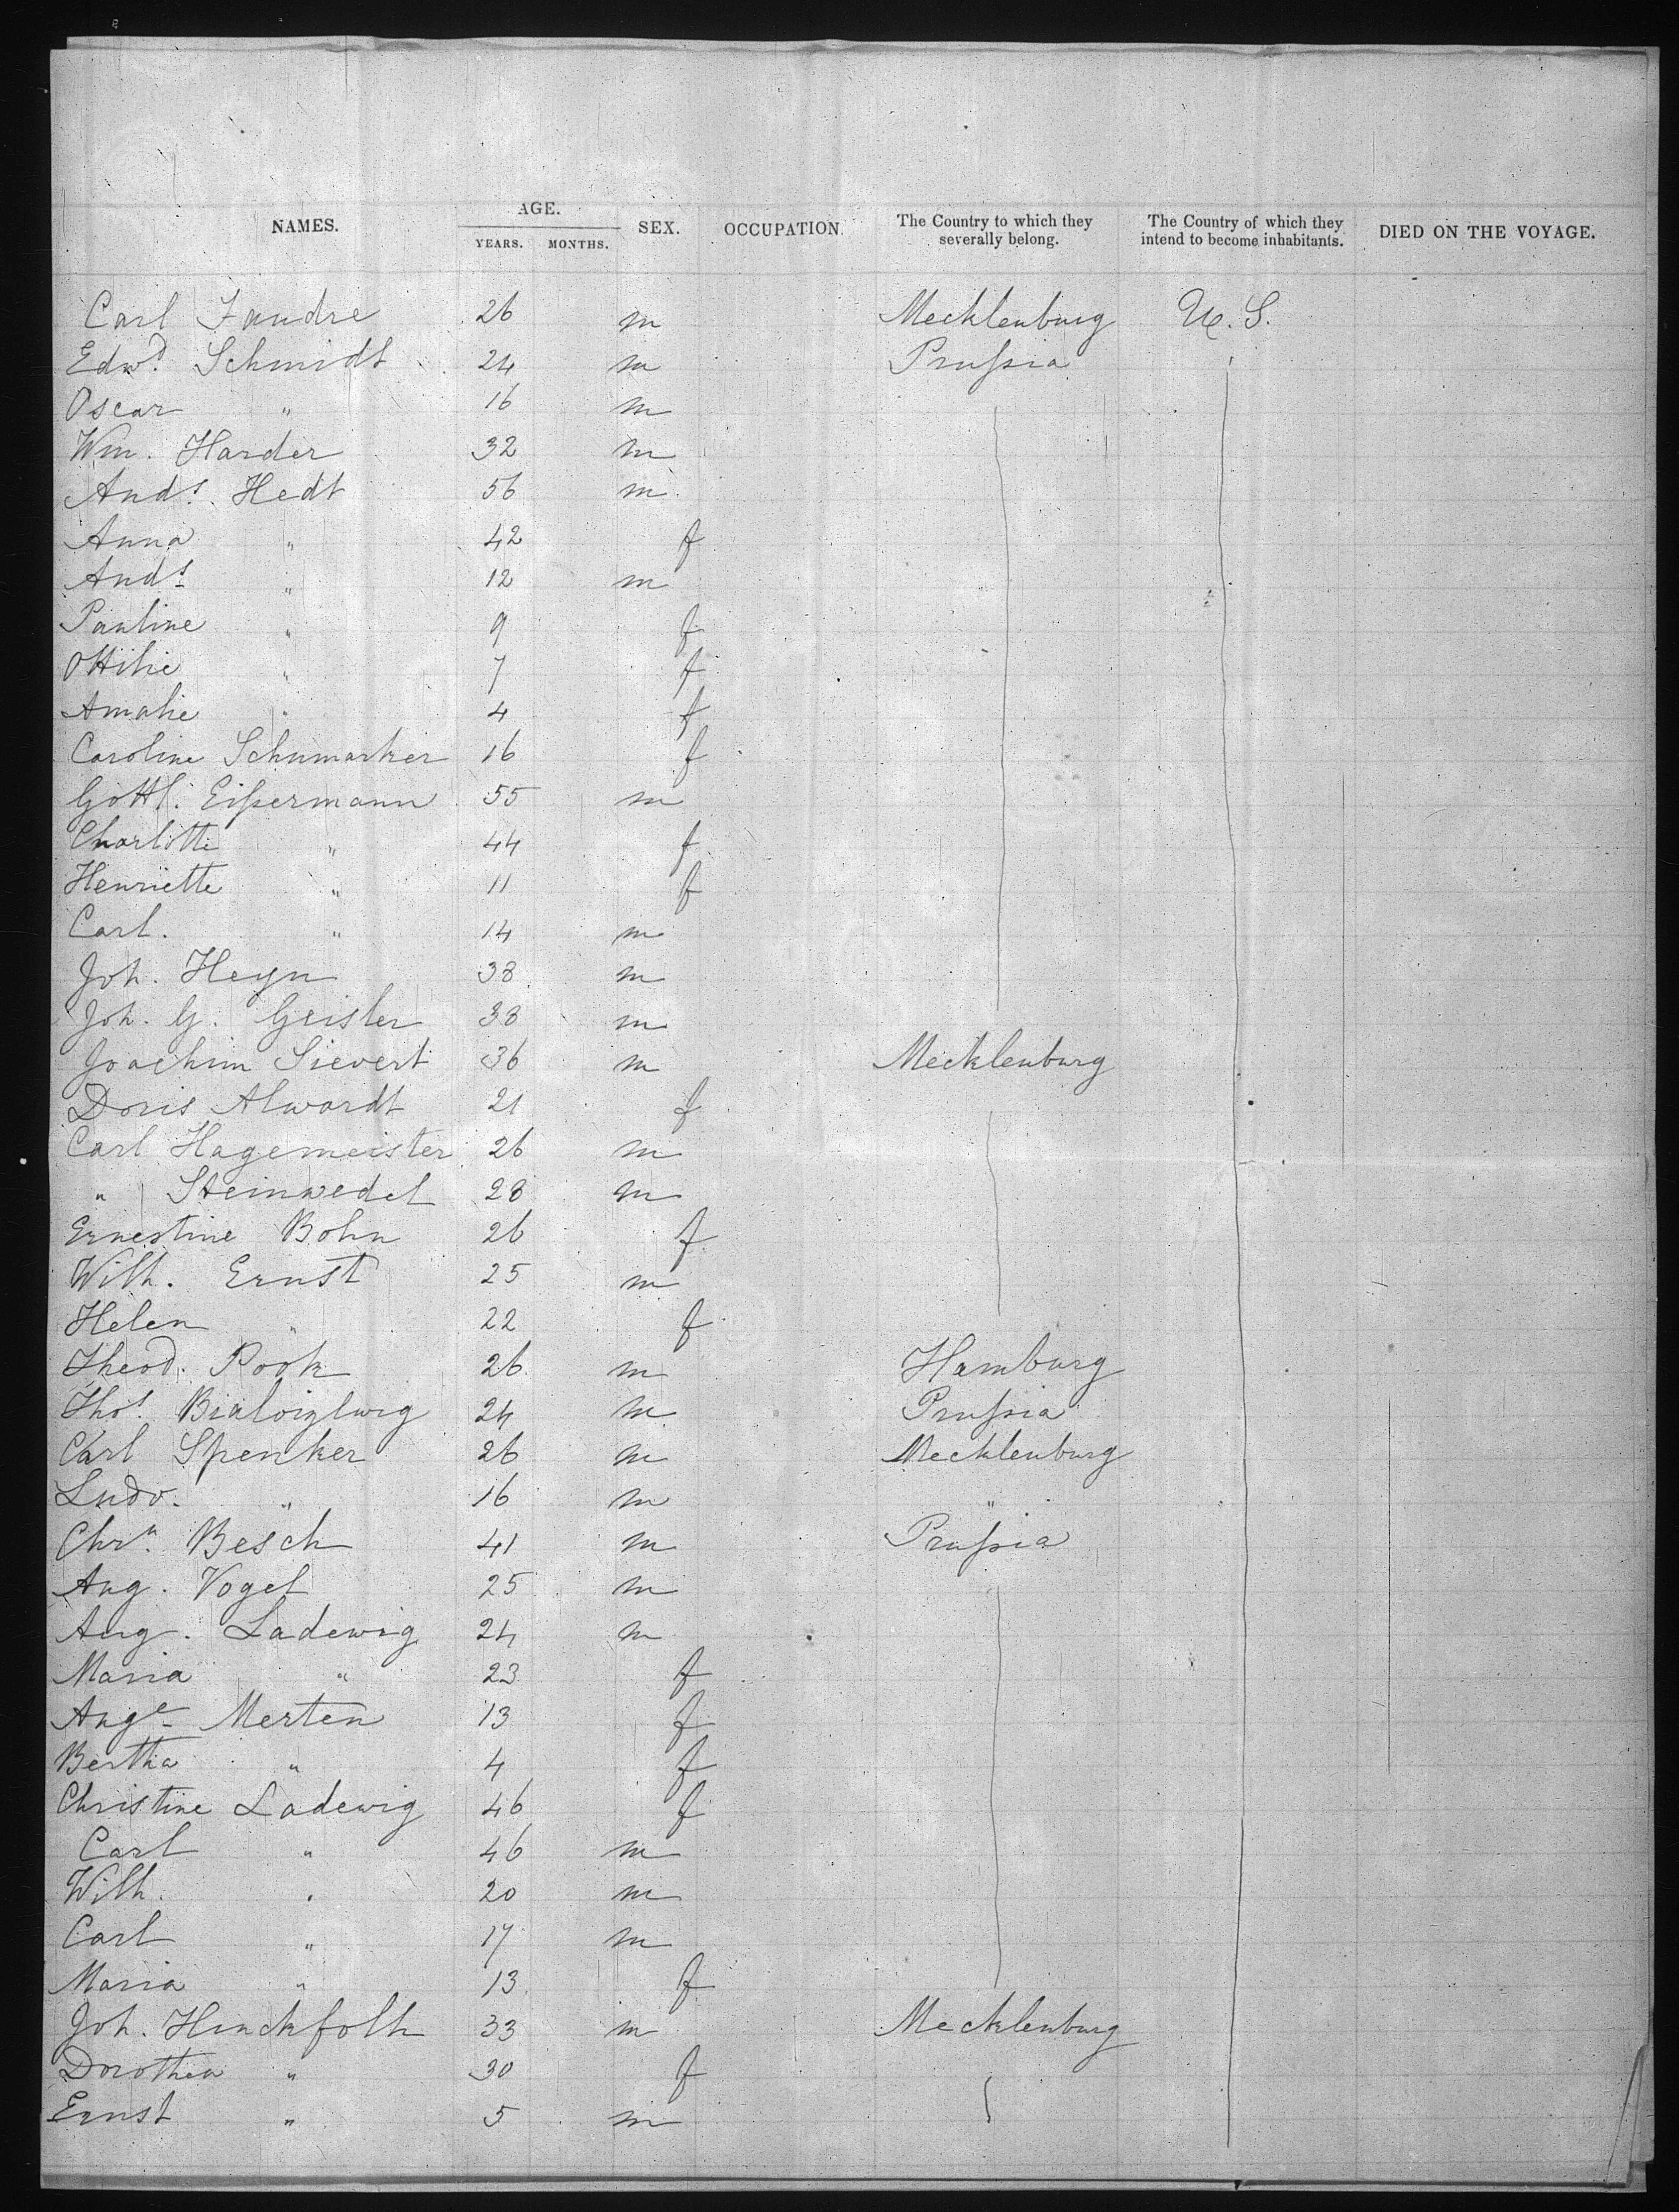 NAMES. AGE. YEARS. MONTHS. SEX. OCCUPATION. The Country to which they severally belong. The Country of which they intend to become inhabitants. DIED ON THE VOYAGE.
Carl Jaudre 26 m Mecklenburg U. S.
Edwd. Schmidt 24 m Prußia
Oscar " 16 m
Wm. Harder 32 m
Ands. Hedt 56 m
Anna " 42 f
Ands. " 12 m
Pauline " 9 f
Ottilie " 7 f
Amalie " 4 f
Caroline Schumarker 16 f
Gottl. Eißermann 55 m
Charlotte " 44 f
Henriette " 11 f
Carl. " 14 m
Joh. Heyn 38 m
Joh. G. Geisler 38 m
Joachim Sievert 36 m Mecklenburg
Doris Alwardt 21 f
Carl Hagemeister 26 m
" Steinwedel 28 m
Ernestine Bohn 26 f
Wilh. Ernst 25 m
Helen " 22 f
Theod. Pook 26 m Hamburg
Thos. 24 m Prußia
Carl Spenker 26 m Mecklenburg
Ludv. " 16 m "
Chrn. Besch 41 m Prußia
Aug. Vogel 25 m
Aug. Ladewig 24 m
Maria " 23 f
Auge. Merten 13 f
Bertha " 4 f
Christine Ladewig 46 f
Carl " 46 m
Wilh. " 20 m
Carl " 17 m
Maria " 13 f
Joh. Hinckfoth 33 m Mecklenburg
Dorothea " 30 f
Ernst " 5 m